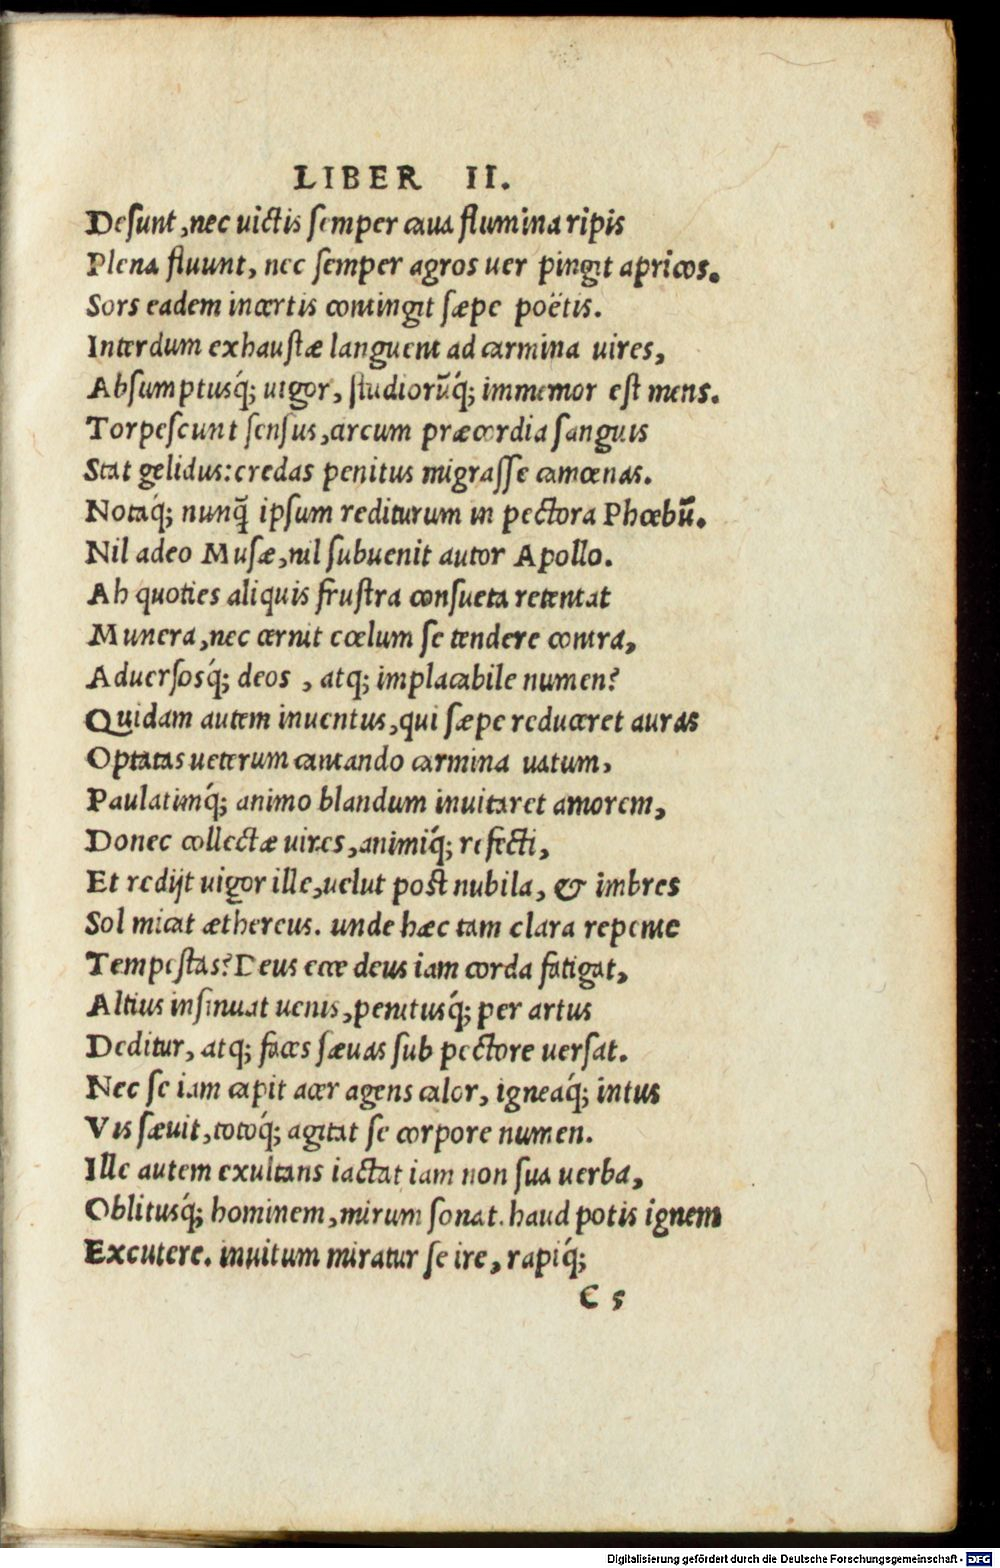 LIBER II.
Desunt, nec uictis semper caua flumina ripis
Plena fluunt, nec semper agros uer pingit apricos.
Sors eadem incertis contingit sæpe poëtis.
Interdum exhaustæ languent ad carmina uires,
Absumptusq́; uigor, studiorũq́; immemor est mens.
Torpescunt sensus, circum præcordia sanguis
Stat gelidus: credas penitus migrasse camœnas.
Notaq́; nunq̃ ipsum rediturum in pectora Phœbũ.
Nil adeo Musæ, nil subuenit autor Apollo.
Ah quoties aliquis frustra consueta retentat
Munera, nec cernit cœlum se tendere contra,
Aduersosq́; deos, atq; implacabile numen?
Quidam autem inuentus, qui sæpe reduceret auras
Optatas ueterum cantando carmina uatum,
Paulatimq́; animo blandum inuitaret amorem,
Donec collectæ uires, animiq́; refecti,
Et redijt uigor ille, uelut post nubila, & imbres
Sol micat æthereus. unde hæc tam clara repente
Tempestas? Deus ecce deus iam corda fatigat,
Altius insinuat uenis, penitusq́; per artus
Deditur, atq; faces sæuas sub pectore uersat.
Nec se iam capit acer agens calor, igneaq́; intus
Vis sæuit, totoq́; agitat se corpore numen.
Ille autem exultans iactat iam non sua uerba,
Oblitusq́; hominem, mirum sonat. haud potis ignem
Excutere. inuitum miratur se ire, rapiq́;
C 5
Digitalisierung gefördert durch die Deutsche Forschungsgemeinschaft - DFG